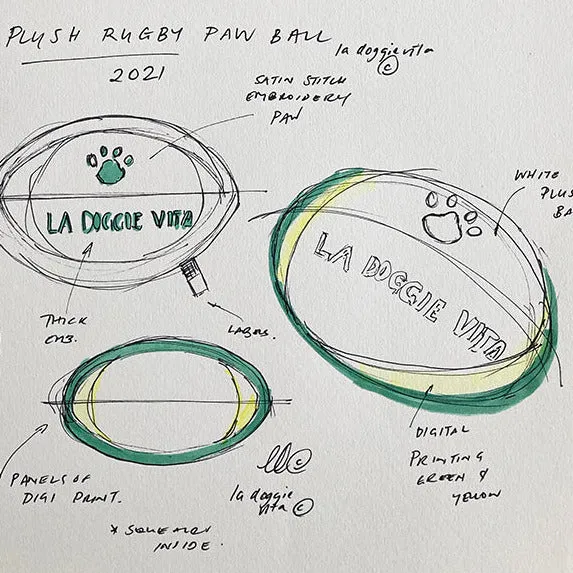 PLUSH RUGBY PAW BALL
la doggie vita
©
2021
SATIN STITCH
EMBROIDERY
PAW
WHITE
PLUS
BA
LA DOGGIE VITA
LA DOGGIE VITA
THICK
EMB.
LABELS.
DIGITAL
PRINTING
GREEN &
YELLOW
PANELS OF
DIGI PRINT.
©
la doggie
vita ©
* SQUEAKER
INSIDE.